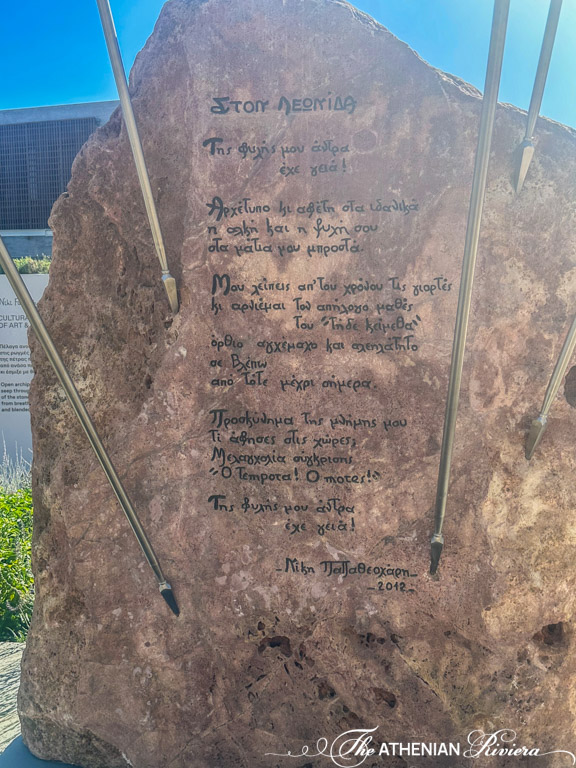 ΣΤΟΝ ΛΕΩΝΙΔΑ
Της φυλής μου άντρα
έχε γειά!
Αρχέτυπο κι αφέτη στα ιδανικά
η αλκή και η ψυχή σου
στα μάτια μου μπροστά.
Μου λείπεις απ' του χρόνου τις γιορτές
κι αρνιέμαι τον απόλογο μαθές
Του "Τήδε κείμεθα"
όρθιο αγχέμαχο και αλληλάτητο
σε βλέπω
από τότε μέχρι σήμερα.
Προσκύνημα της μνήμης μου
Τι άφησες στις χώρες;
Μελαγχολία σύγκρισης
"O Tempora! O mores!"
Της φυλής μου άντρα
έχε γειά!
-Νίκη Παπαθεοχάρη-
-2012-
CULTURA
OF ART &
Open archip
seep through
of the stone
from breath
and blende
The ATHENIAN Riviera